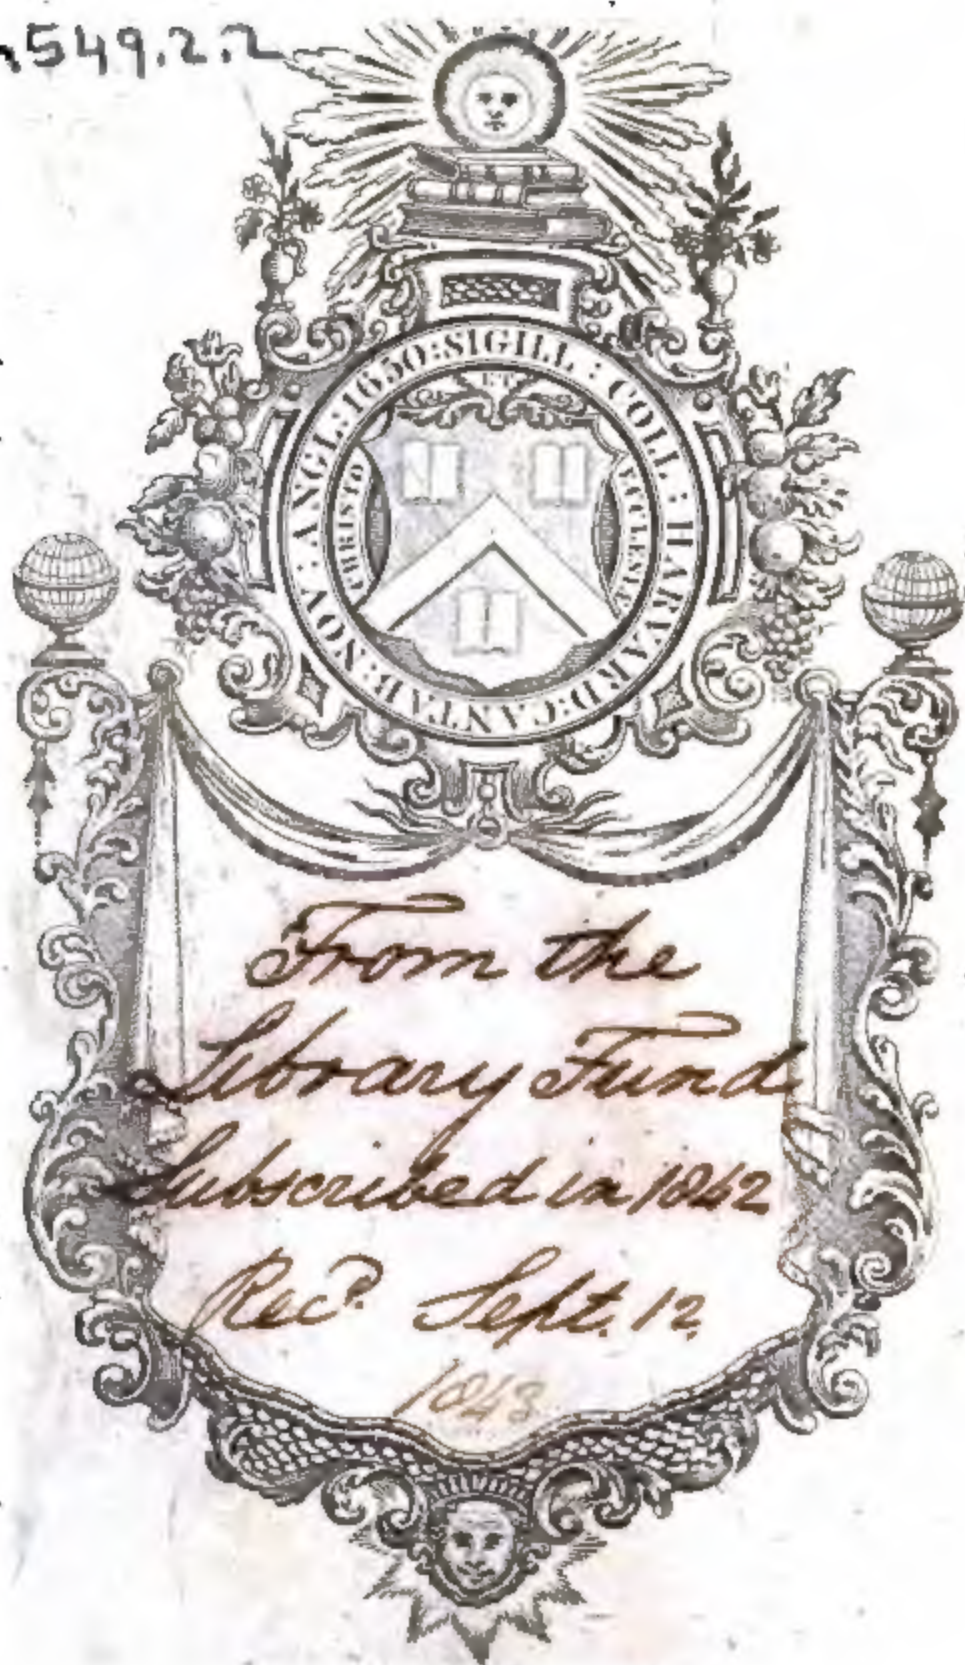 549.2.2
SIGILL : COLL : HARVARD : CANTAB : NOV : ANGL : 1650 :
CHRISTO ET ECCLESIÆ
From the
Library Fund
Subscribed in 1842
Rec.d Sept. 12
1843